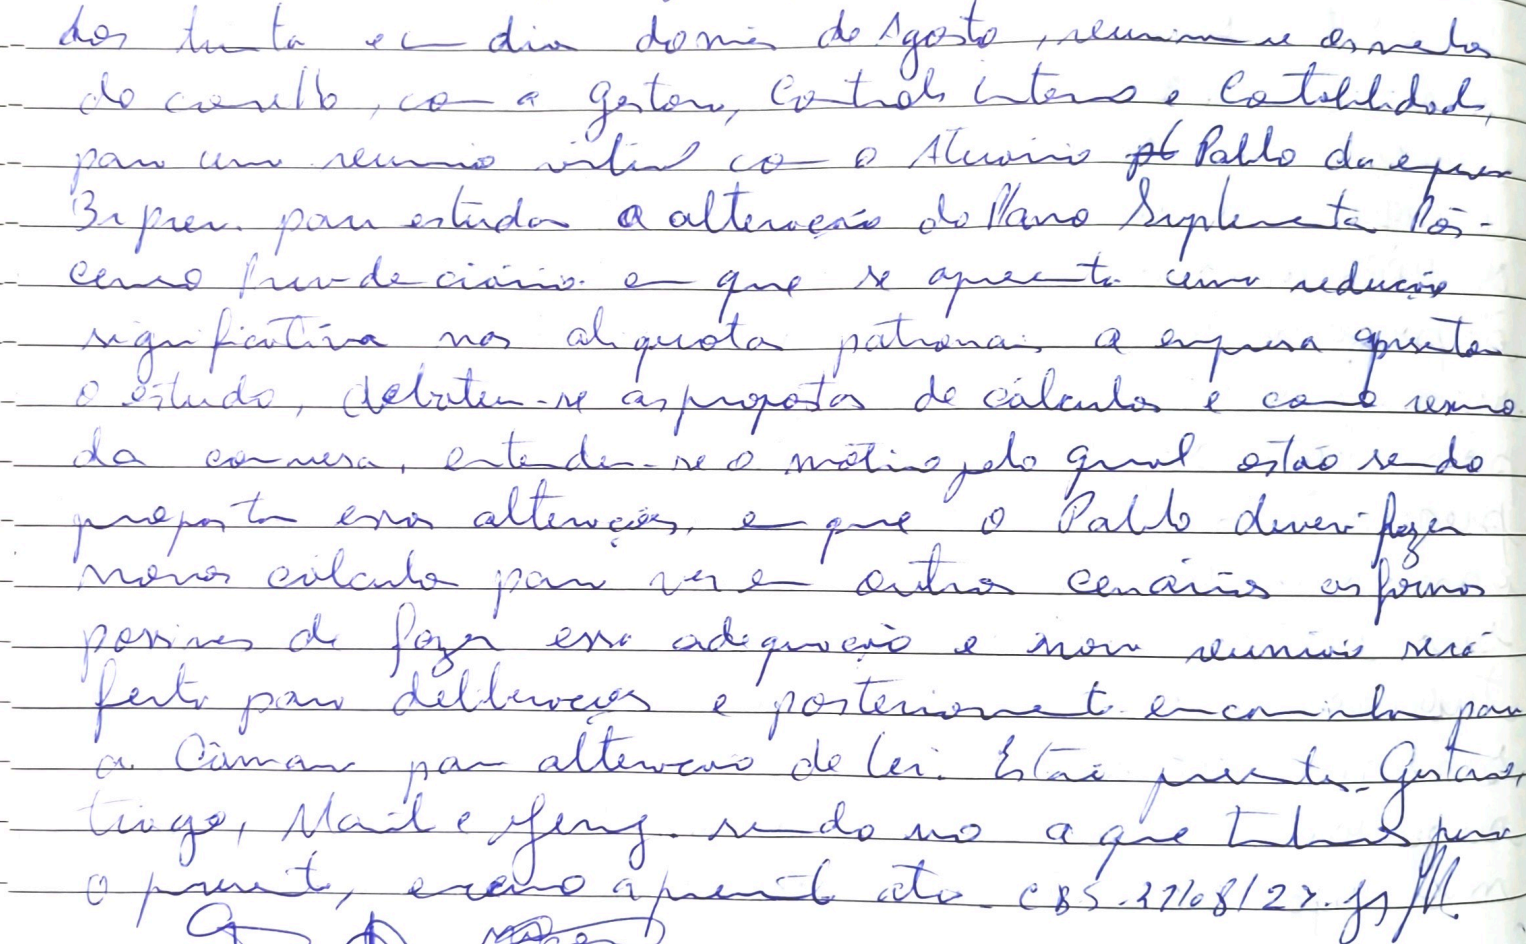 dos trinta e um dias do mês de Agosto, reuniram-se os membros
do conselho, com a Gestora, Controle Interno e Contabilidade,
para uma reunião virtual com o Atuário Pablo da empresa
Brprev. para estudar a alteração do Plano Suplementar Pós-
censo Previdenciário. em que se apresenta uma redução
significativa nas aliquotas patronais a empresa apresentou
o estudo, debateu-se as propostas de cálculos e como resumo
da conversa, entende-se o motivo pelo qual estão sendo
proposta essas alterações, em que o Pablo deverá fazer
novos cálculos para ver em outros cenários as formas
possíveis de fazer essa adequação e nova reunião será
feita para deliberações e posteriormente encaminha para
a Câmara para alteração de lei. Estão presente. Gustavo,
Tiago, e sendo no a que para
o presente, encerro a presente ata. CBS. 27/08/